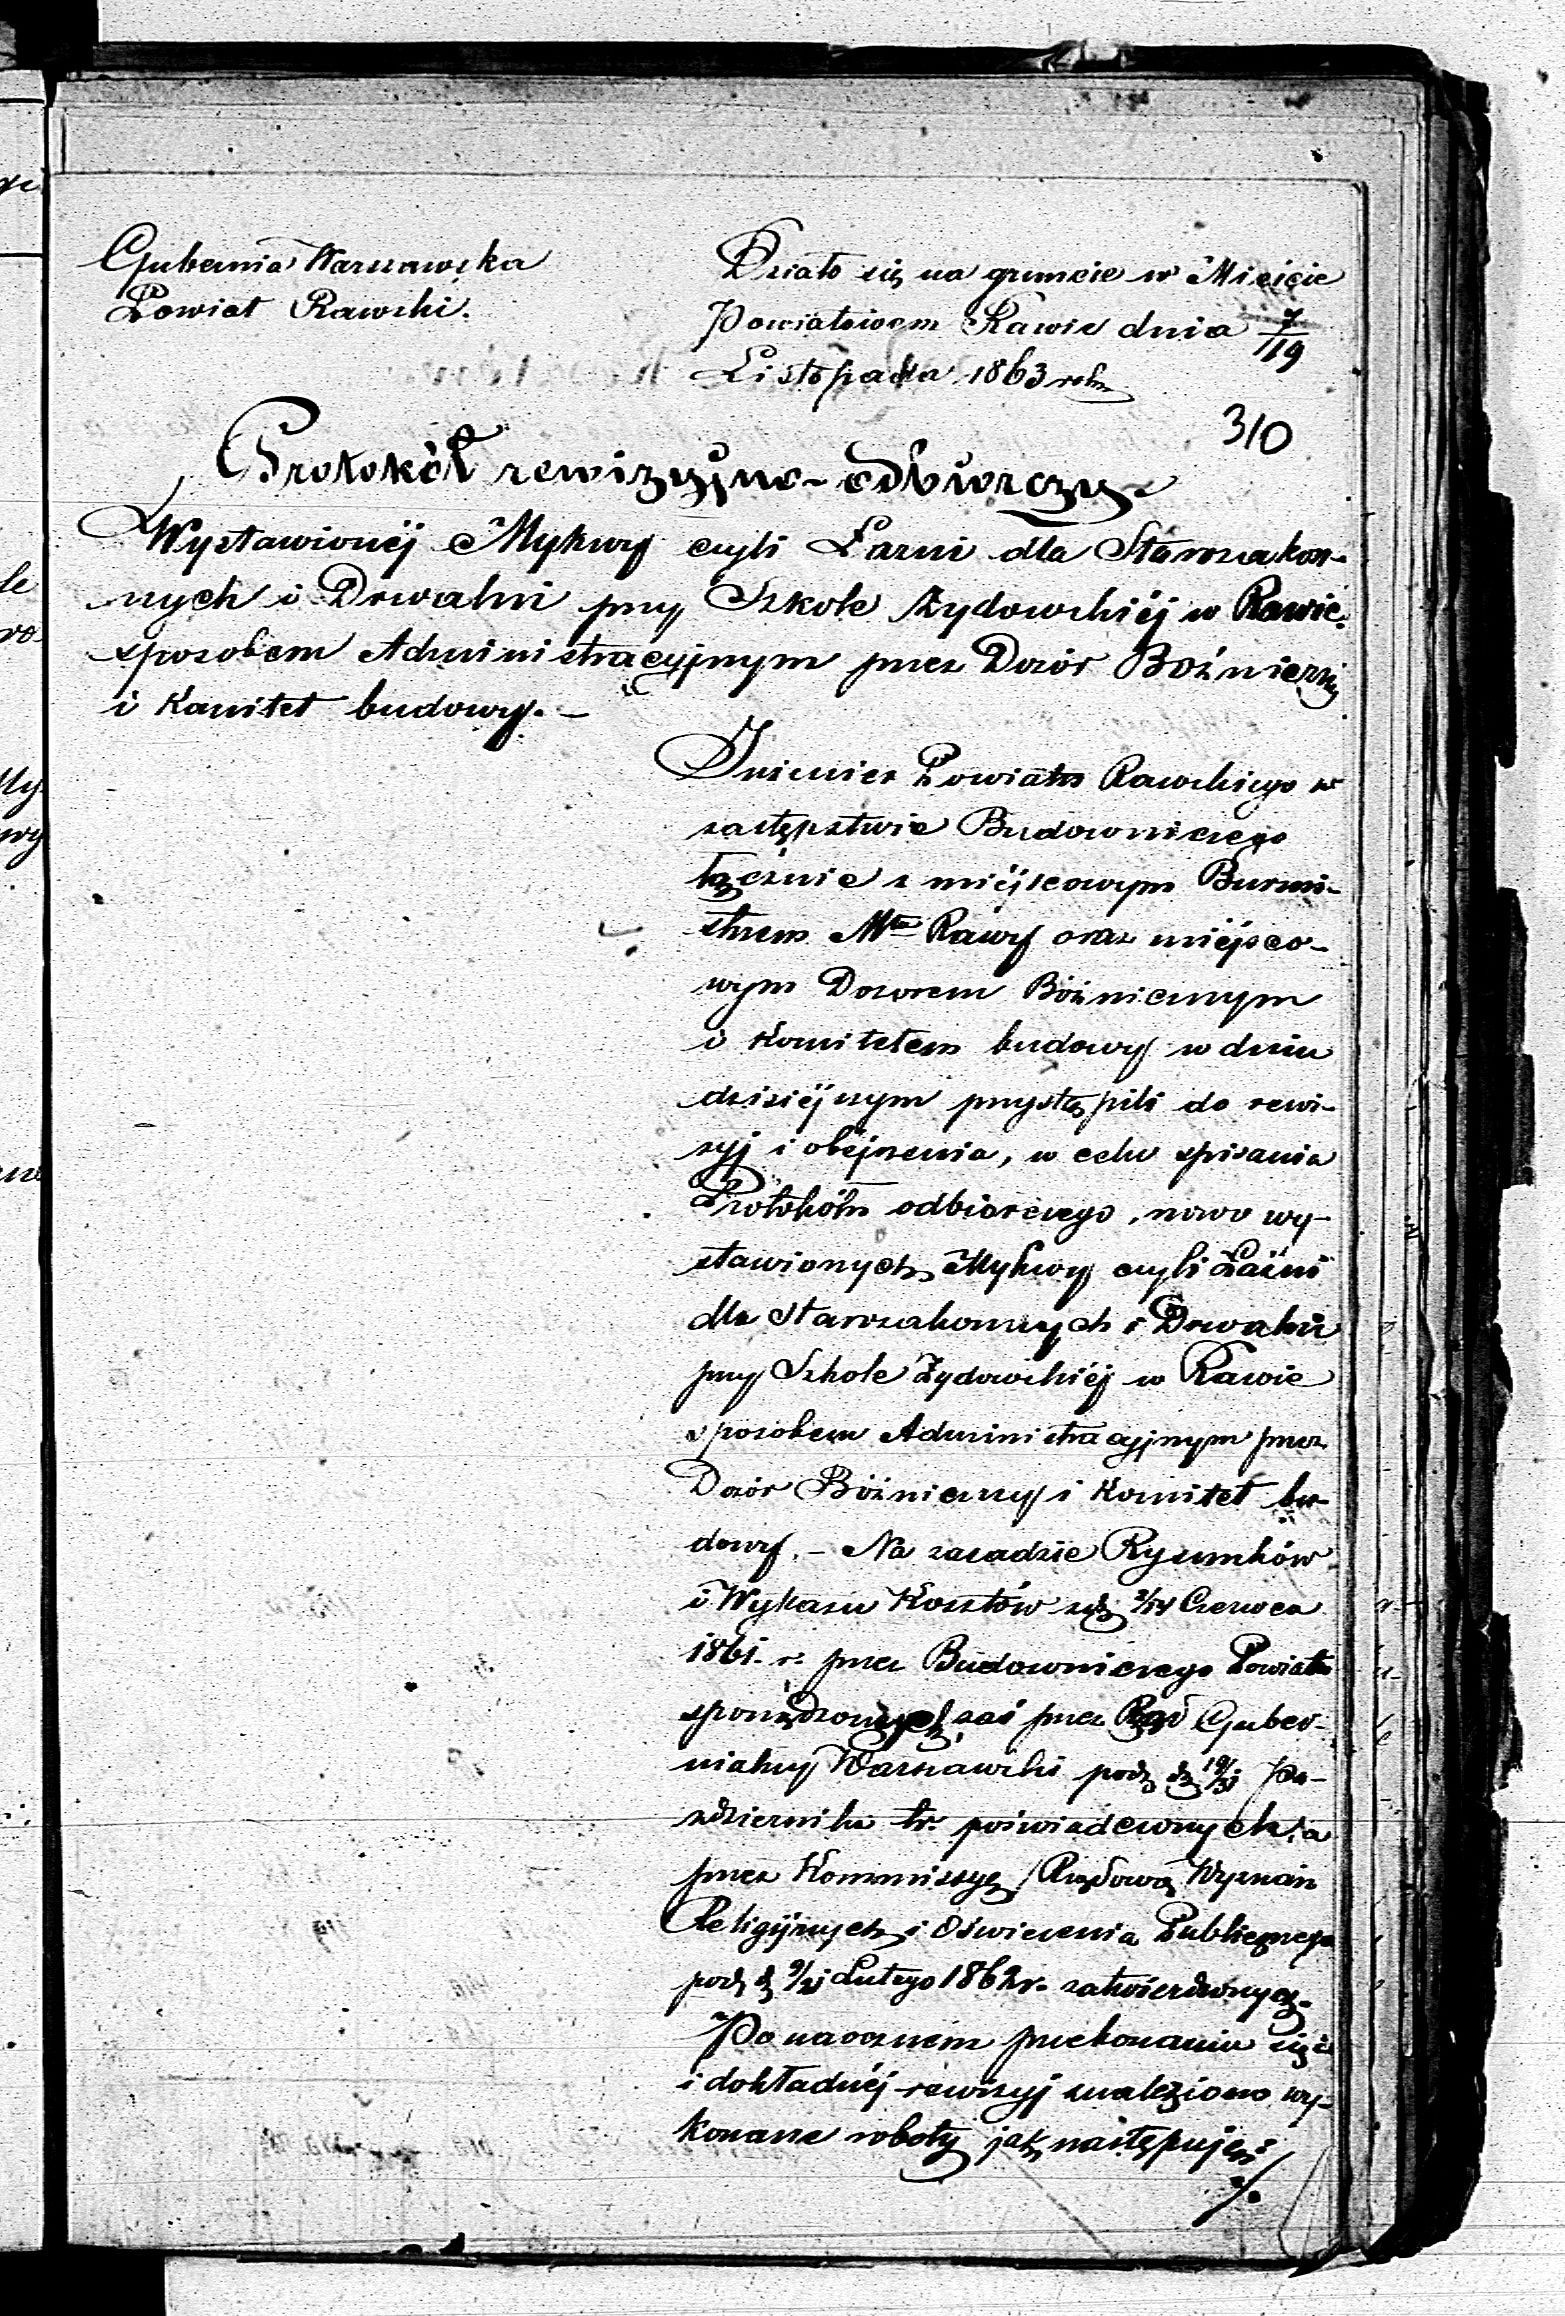 Gubernia Warszawska
Powiat Rawski.
Działo się na gruncie w Mieście
Powiatowem Rawie dnia 7/19
Listopada 1863 roku
310
Protokół rewizyjno-odbiorczy
Wystawionéj Mykwy czyli Łazni dla Starozakon-
nych i Drwalni przy Szkole Żydowskiéj w Rawie
sposobem Administracyjnym przez Dozór Bóżniczny
i Komitet budowy. –
Inżenier Powiatu Rawskiego w
zastępstwie Budowniczego
łącznie z miéjscowym Burmi-
strzem Mta Rawy oraz miéjsco-
wym Dozorem Bóżnicznym
i Komitetem budowy w dniu
dzisiéjszym przystąpili do rewi-
zyj i obéjrzenia, w celu spisania
Protokółu odbiorczego, nowo wy-
stawionych Mykwy czyli Łaźni
dla Starozakonnych i Drwalni
przy Szkole Żydowskiéj w Rawie
sposobem Administracyjnym przez
Dozór Bóżniczny i Komitet bu-
dowy. – Na zasadzie Rysunków
i Wykazu Kosztów z d. 2/14 Czerwca
1861. r. przez Budowniczego Powiatu
sporządzonych, zaś przez Rząd Guber-
nialny Warszawski pod d. 19/31 Pa-
ździernika t.r. poświadczonych, a
przez Kommissyę Rządową Wyznań
Religijnych i Oświecenia Publicznego
pod d. 9/21 Lutego 1862 r. zatwierdzonych.
Po naocznem przekonaniu się
i dokładnéj rewizyj znaleziono wy-
konane roboty jak następuje:
./.